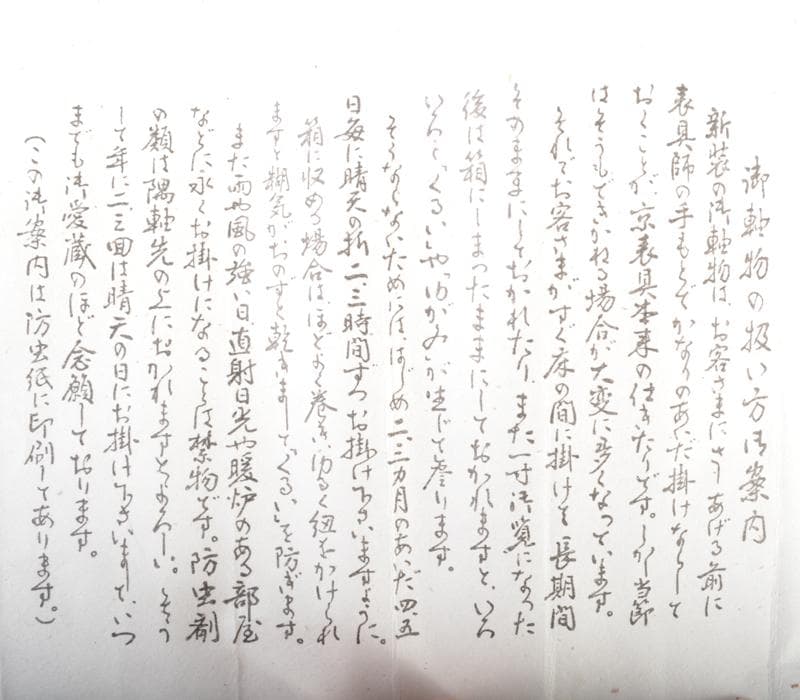 御軸物の扱い方御案内
新装の御軸物は、お客さまにさしあげる前に
表具師の手もとでかなりのあいだ掛けならして
おくことが、京表具本来の仕きたりです。しかし当節
はそうもできかねる場合が大変に多くなっています。
それでお客さまがすぐ床の間に掛けて長期間
そのままにしておかれたり、また一寸御覧になった
後は箱にしまったままにしておかれますと、いろ
いろと、「くるい」や「ゆがみ」が生じて参ります。
そうならないためには、はじめ二、三カ月のあいだ四、五
日毎に晴天の折二、三時間ずつお掛け下さいますように。
箱に収める場合はほどよく巻き、ゆるく紐をかけられ
ますと糊気がおのずと乾きまして「くるい」を防ぎます。
また雨や風の強い日、直射日光や暖炉のある部屋
などに永くお掛けになることは禁物です。防虫剤
の類は隅軸先の上におかれますとよろしい。そう
して年に一、三回は晴天の日にお掛け下さいまして、いつ
までも御愛蔵のほど念願しております。
(この御案内は防虫紙に印刷してあります。)